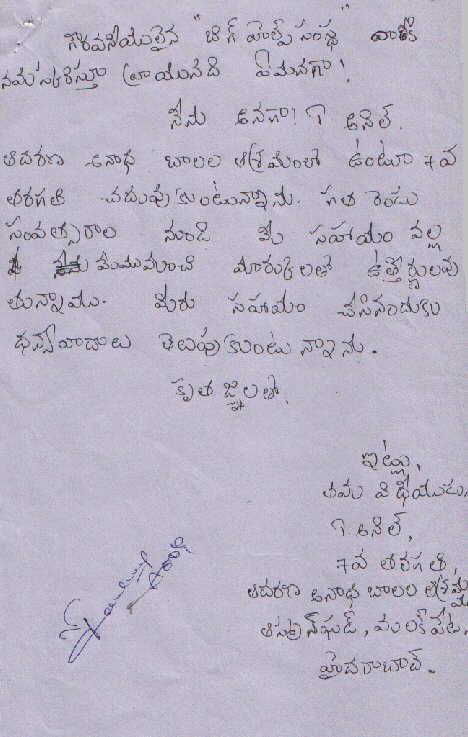 గౌరవనీయులైన "బిగ్ హెల్ప్ సంస్థ" వారికి
నమస్కరిస్తూ వ్రాయునది ఏమనగా!
నేను అనగా! G అనిల్.
ఆదరణ అనాథ బాలల ఆశ్రమంలో ఉంటూ 7వ
తరగతి చదువుకుంటున్నాను. గత రెండు
సంవత్సరాల నుండి మీ సహాయం వల్ల
మేము మంచి మార్కులతో ఉత్తీర్ణులవు
తున్నాము. మీరు సహాయం చేసినందుకు
ధన్యవాదాలు తెలుపుకుంటున్నాను.
కృతజ్ఞతలతో.
ఇట్లు,
తమ విధేయుడు,
G అనిల్,
7వ తరగతి,
ఆదరణ అనాథ బాలల ఆశ్రమ
మలక్ పేట,
హైదరాబాద్.